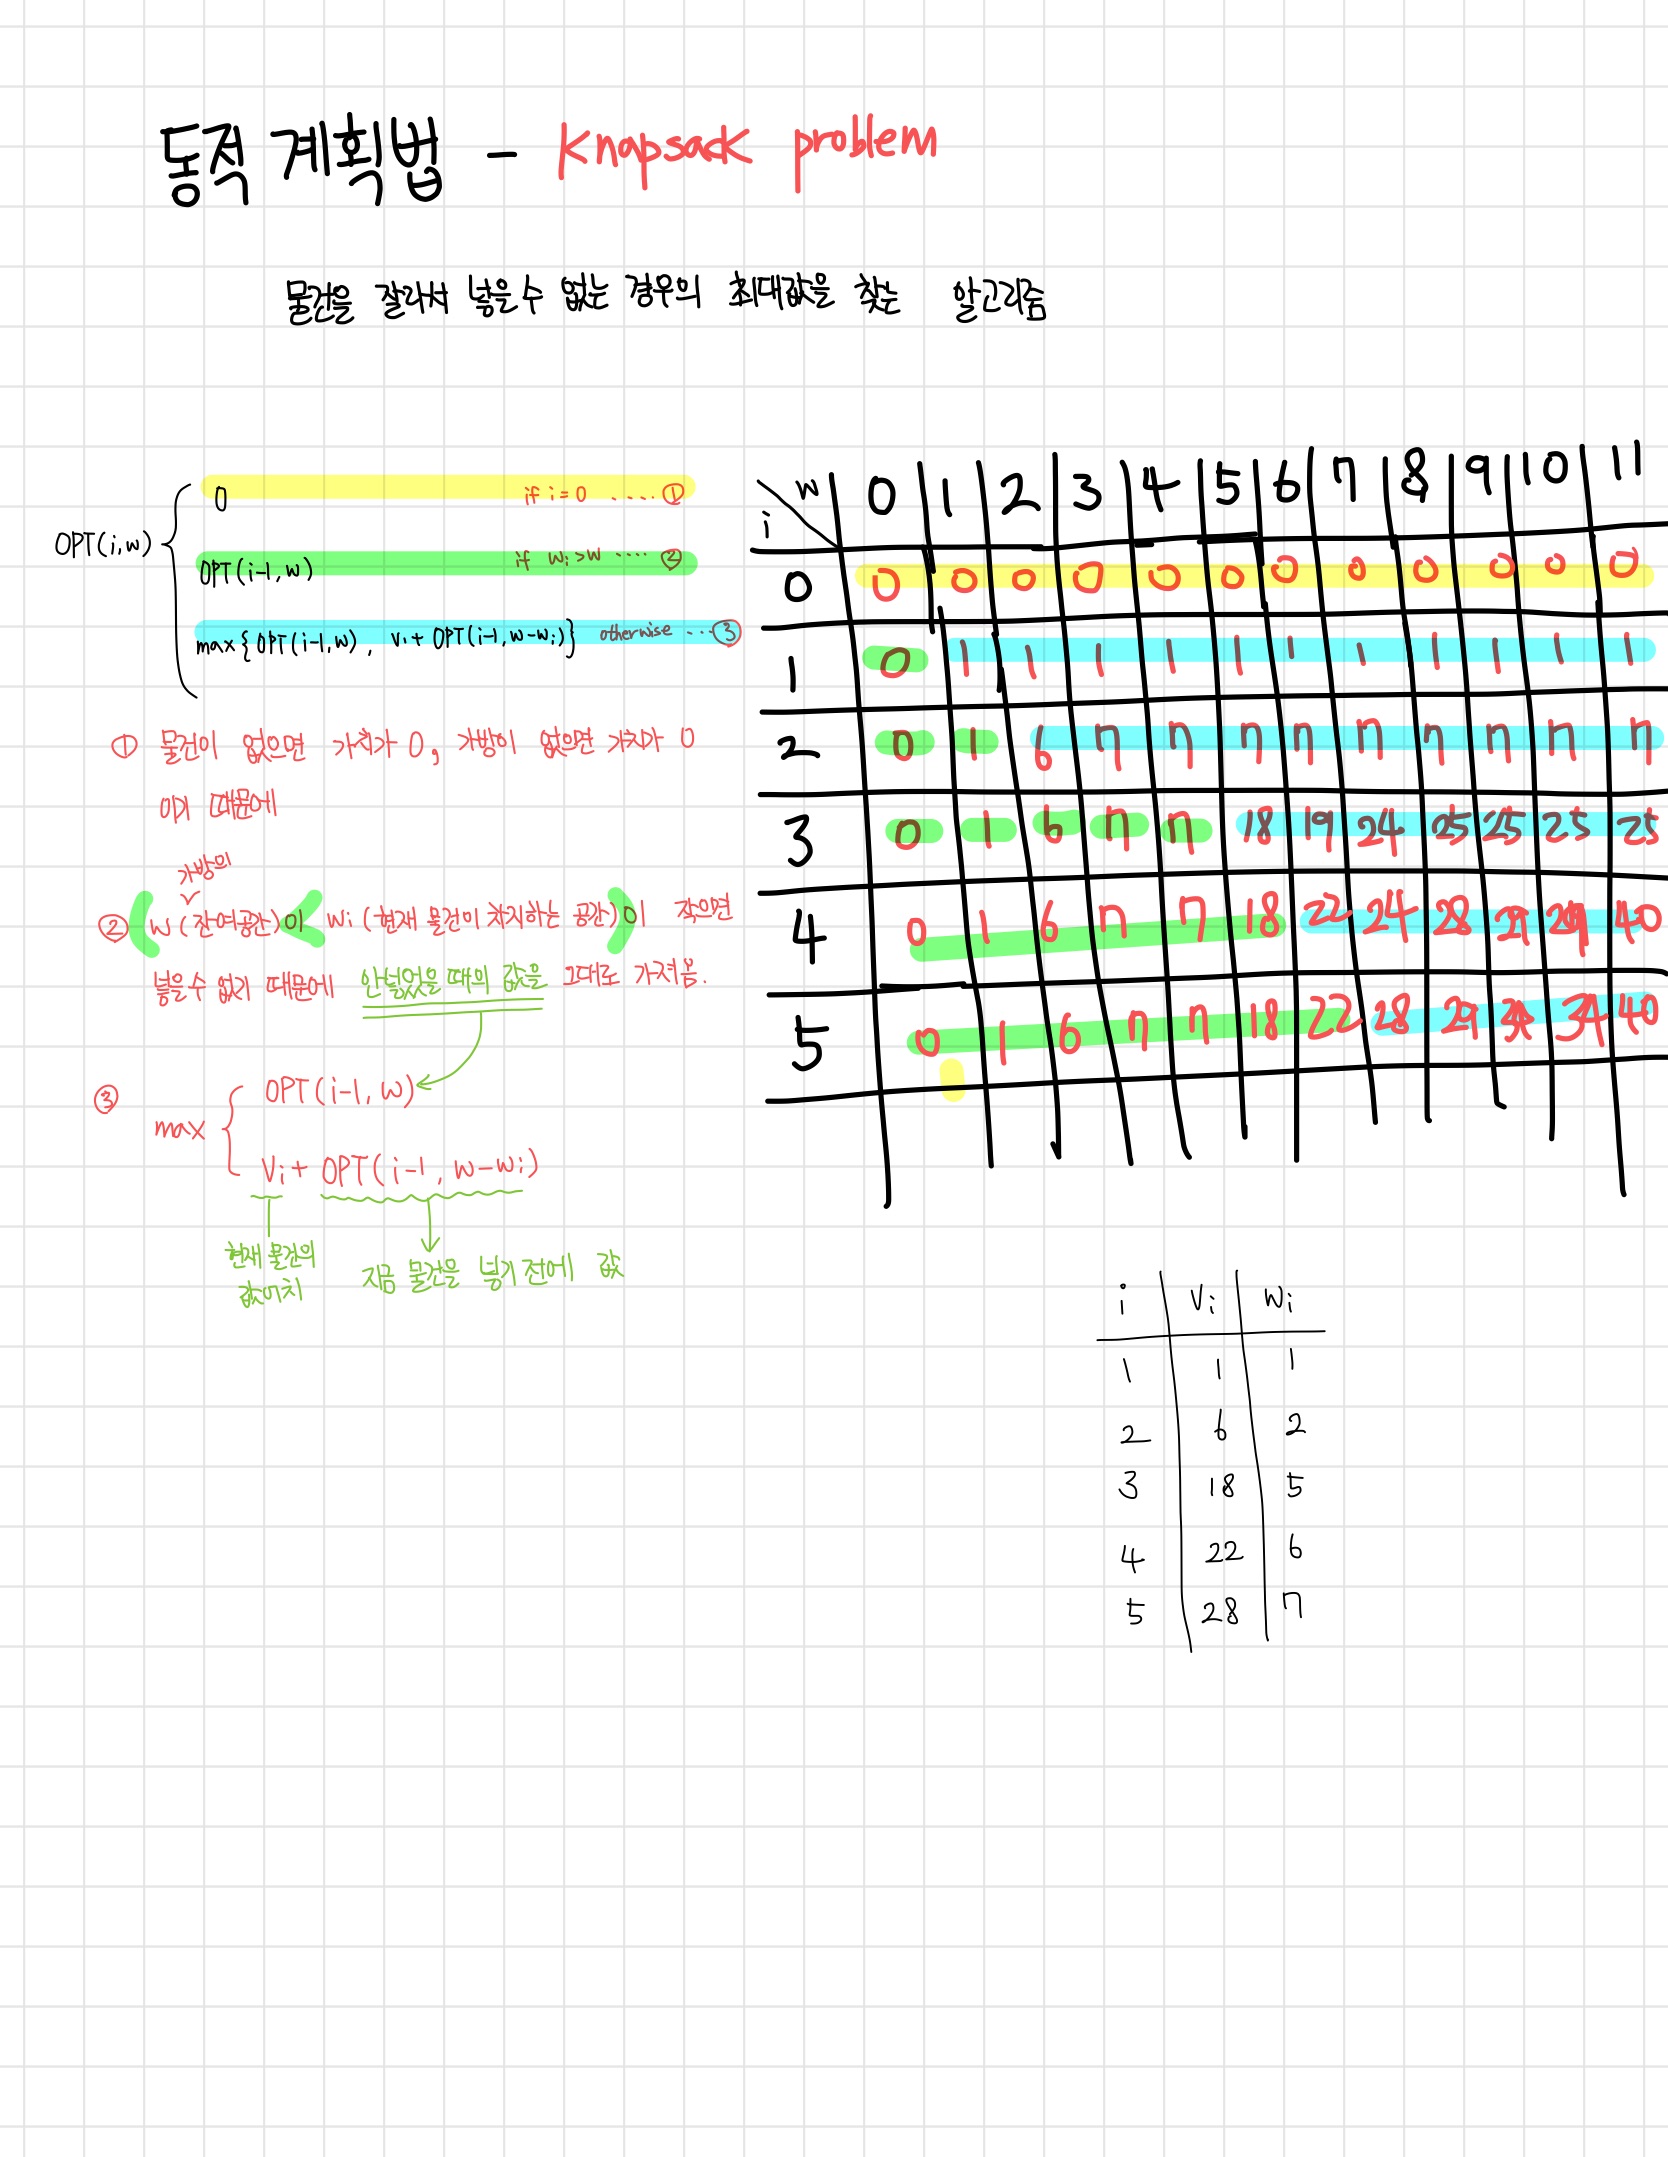 동적 계획법 - Knapsack problem
물건을 잘라서 넣을 수 없는 경우의 최대값을 찾는 알고리즘
OPT(i,w)
0 if i=0 ····· ①
OPT(i-1,w) if wi>w ···· ②
max{OPT(i-1,w), vi+OPT(i-1,w-wi)} otherwise ···③
① 물건이 없으면 가치가 0, 가방이 없으면 가치가 0
이기 때문에
가방의
② (w(잔여공간)이 < wi(현재 물건이 차지하는 공간))이 작으면
넣을 수 없기 때문에 안넣었을 때의 값을 그대로 가져옴.
③ max
OPT(i-1,w)
Vi+OPT(i-1, w-wi)
현재 물건의
값어치
지금 물건을 넣기 전에 값
i w 0 1 2 3 4 5 6 7 8 9 10 11
0 0 0 0 0 0 0 0 0 0 0 0 0
1 0 1 1 1 1 1 1 1 1 1 1 1
2 0 1 6 7 7 7 7 7 7 7 7 7
3 0 1 6 7 7 18 19 24 25 25 25 25
4 0 1 6 7 7 18 22 24 28 29 29 40
5 0 1 6 7 7 18 22 28 29 34 40
i Vi Wi
1 1 1
2 6 2
3 18 5
4 22 6
5 28 7